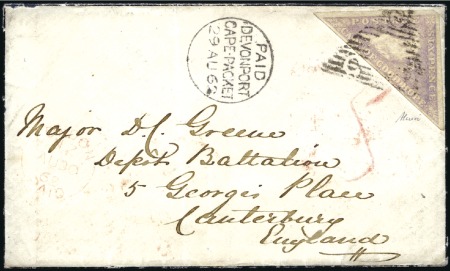 PAID
DEVONPORT
CAPE-PACKET
29 AU 62
POSTAGE
Major D. Greene
Depôt Battalion
5 Georges Place
Canterbury
England